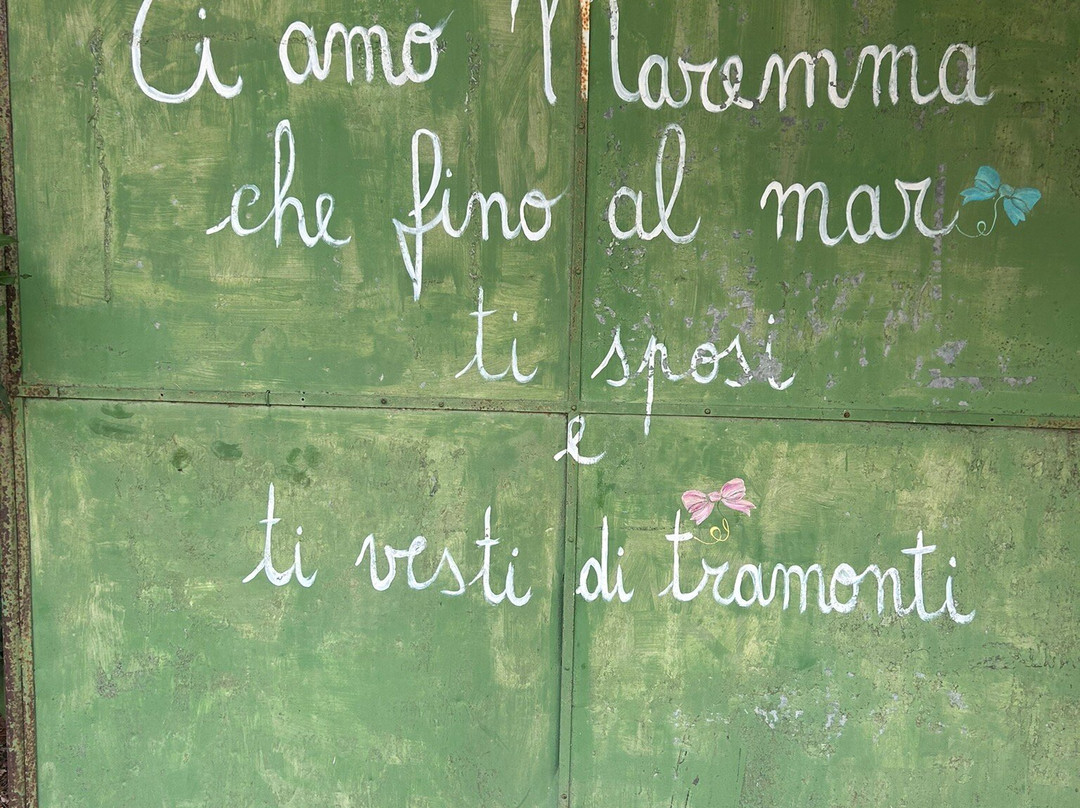 Ti amo Maremma
che fino al mar
ti sposi
e
ti vesti di tramonti